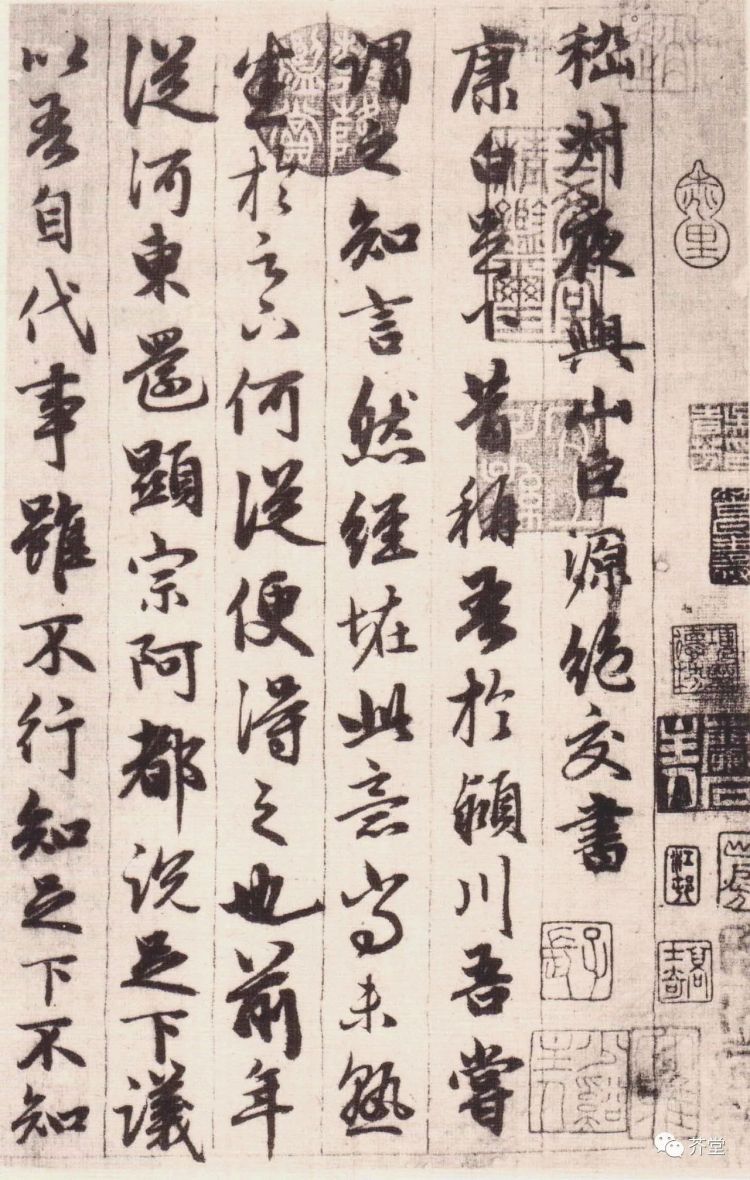 嵇叔夜與山巨源絕交書
康白足下昔稱吾於潁川吾嘗
謂之知言然經怪此意尚未熟
悉於足下何從便得之也前年
從河東還顯宗阿都說足下議
以吾自代事雖不行知足下不知
江邨
高士奇
芥堂